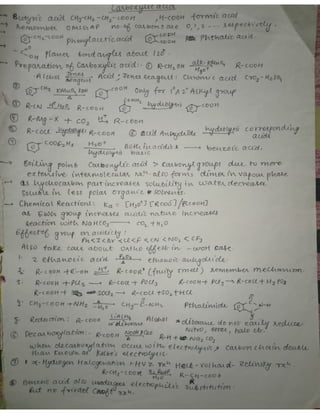 Carboxylic acid
Butyric acid CH3-CH2-CH2-COOH, H-COOH formic acid
Remember OMSGAP no of carbons are 0,1,2 --- respectively.
CH2-COOH Phenylacetic acid COOH COOH Phthalic acid.
Planar bond angles about 120°
Preparation of Carboxylic acid: ① R-CH2OH alk. KMnO4 H3O+ R-COOH
Jones Reagent Acid; Jones reagent: Chromic acid CrO3-H2SO4
② KMnO4, KOH COOH Only for 1° 2° Alkyl group
③ R-CN H3O+ R-COOH CONH2 hydrolysis COOH
④ R-Mg-X + CO2 R-COOH
⑤ R-COCl hydrolysis R-COOH ⑥ Acid Anhydride hydrolysis corresponding acids
⑦ COOC2H5 H3O+ hydrolysis Both in acidic & basic benzoic acid.
Boiling point Carboxylic acid > Carbonyl groups due to more
extensive intermolecular also forms dimer in vapour phase
as hydrocarbon part increases solubility in water decrease.
Soluble in less polar organic solvents.
Chemical Reactions: Ka = [H3O+][RCOO-]/[RCOOH]
as EWG group increases acidic nature increases
reaction with NaHCO3 → CO2 + H2O
Effect of group on acidity:
Ph < I < Br < Cl < F < CN < NO2 < CF3
Also take care about ortho effect in -
1. 2 ethanoic acid P2O5 ethanoic anhydride
2. R-COOH + R'-OH H+ R-COOR' (fruity smell) Remember mechanism.
3. R-COOH + PCl5 → R-COCl + POCl3 R-COOH + PCl3 → R-COCl + H3PO3
R-COOH + SOCl2 → R-COCl + SO2 + HCl
4. CH3-COOH + NH3 CH3-C-NH2 Phthalimide
5. Reduction: R-COOH LiAlH4 or diborane Alcohol * diborane do not easily reduce
NO2, ester, halo etc.
⑥ Decarboxylation:- R-COOH NaOH & CaO R-H + Na2CO3
when decarboxylation occur with electrolysis, carbon chain double
than known as Kolbe's electrolysis.
⑦ α-Hydrogen Halogenation Hell-Volhard-Zelinsky rxn
R-CH2-COOH R-CH-COOH
⑧ Benzoic acid also undergoes electrophilic substitution.
but no friedel Craft rxn.